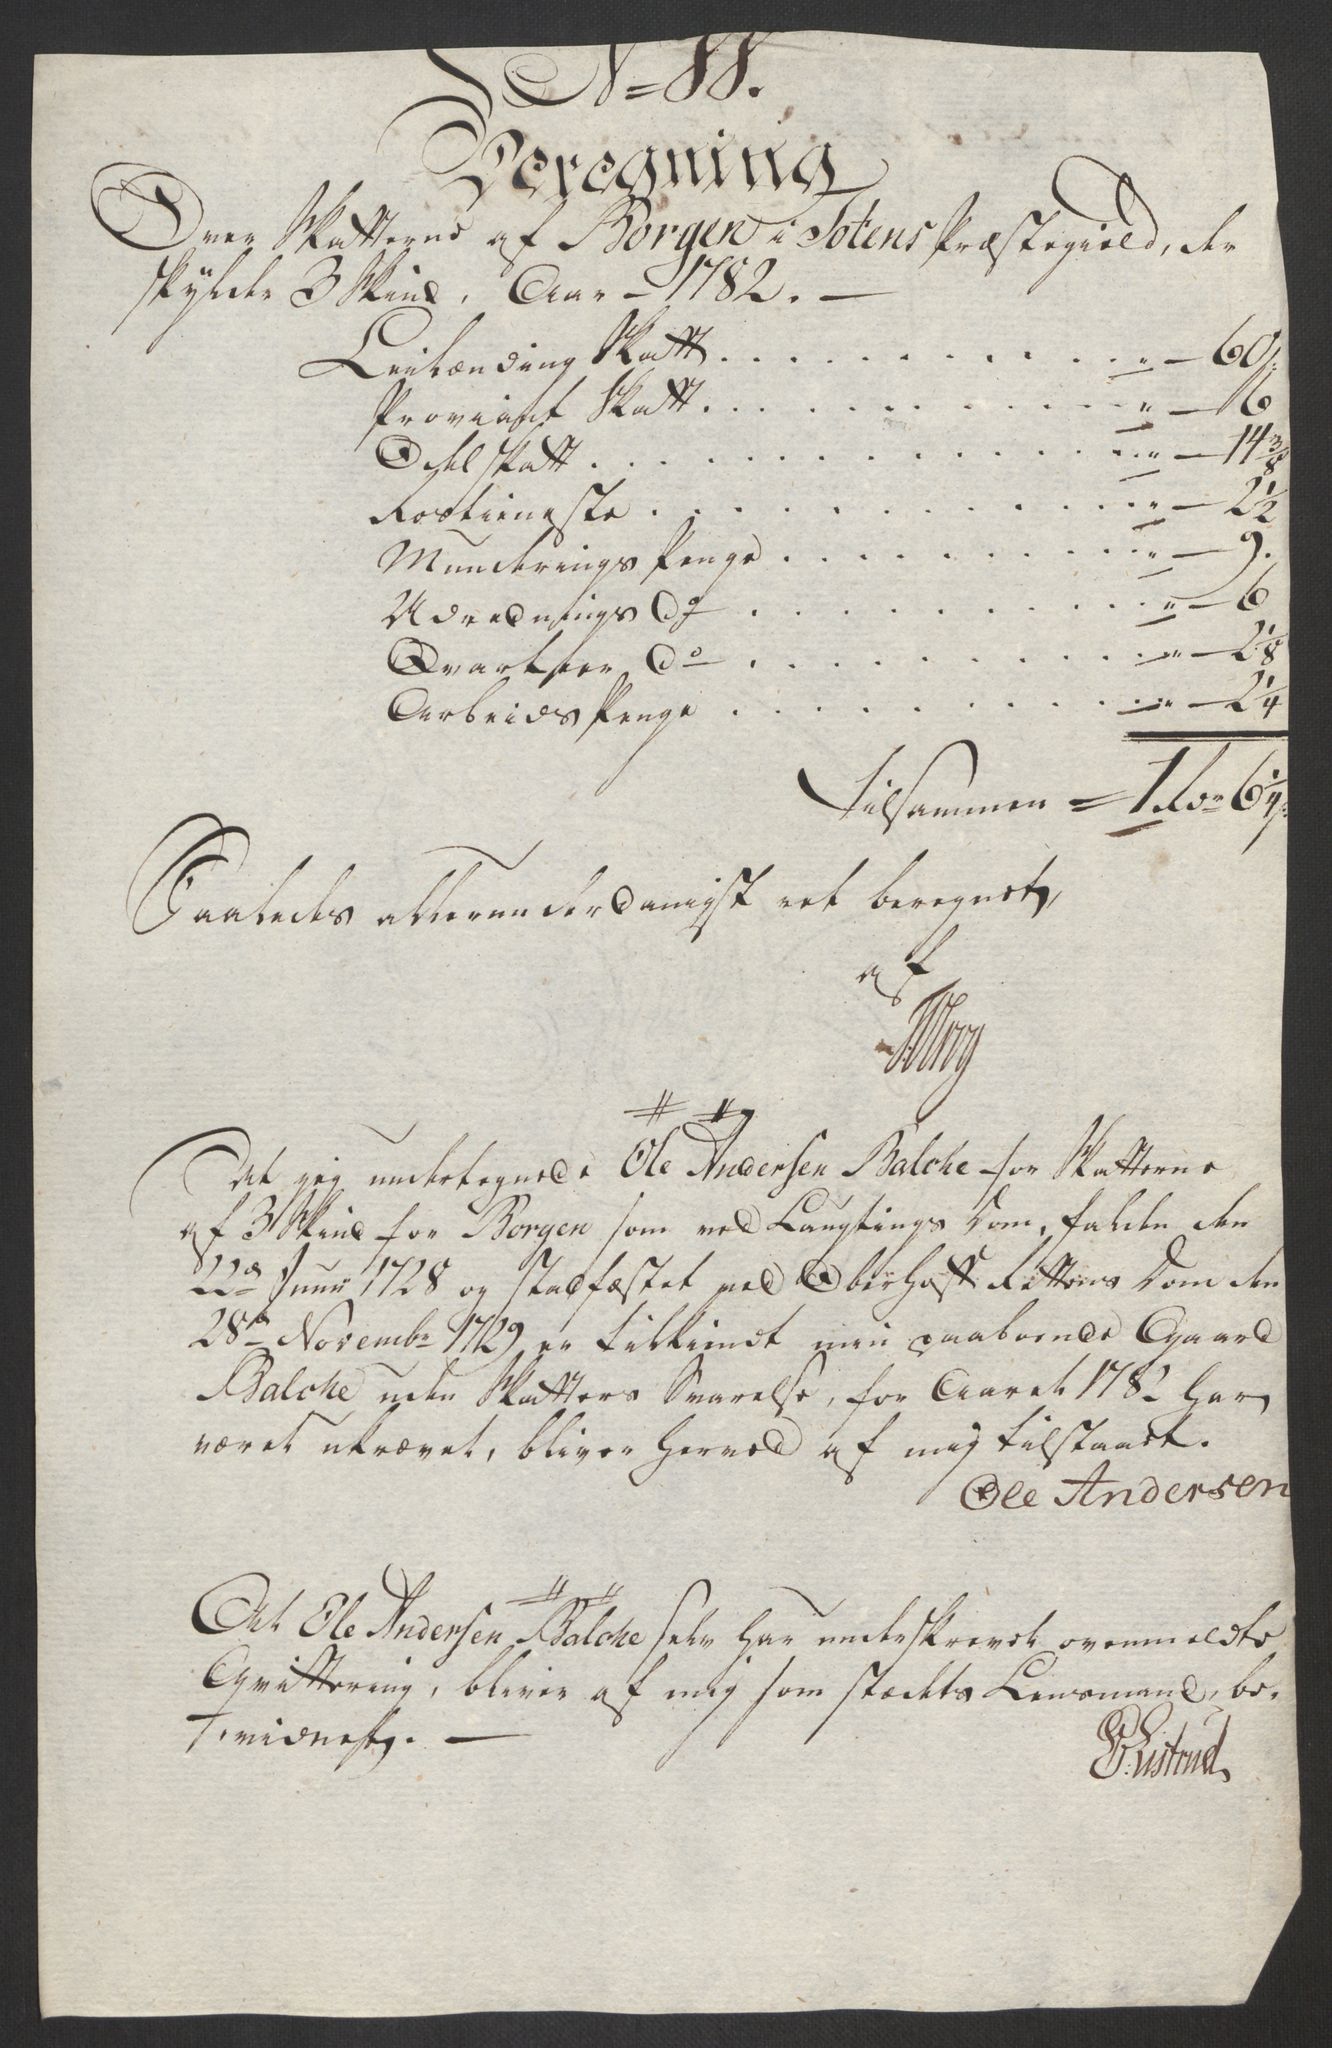 N=
Beregning
Over Skatterne af Borgen i Totens Præstegield, der
skylder 3 Skind, Aar - 1782. —
Leilænding Skatt . . . . . . . . . . . " — 60 s:
Proviant Skatt . . . . . . . . . . . . " — 6
Odelskatt . . . . . . . . . . . . . . " — 14 3/8
Rostieneste . . . . . . . . . . . . . " — 2 1/2
Munderings Penge . . . . . . . . . . " — 9.
Udrednings Do . . . . . . . . . . . " — 6
Qvarteer Do . . . . . . . . . . . . " — 2 1/8
Arbeids Penge . . . . . . . . . . . " — 2 1/4
Tilsammen = 1 Rdr 6 1/4 s:
Saaledes allerunderdanigst ret beregnet,
af
At jeg undertegnede Ole Andersen Balche for Skatterne
af 3 Skind for Borgen som ved Laugtings Dom, falden den
22de Junii 1728 og stadfæstet ved OberHoff Rettens Dom den
28de Novembr 1729 er tilkiendt min paaboende Gaard
Balche uden Skatters Svarelse, for Aaret 1782 har
været ukrævet, bliver herved af mig tilstaaet.
Ole Andersen
At Ole Andersen Balche selv har underskrevet ovenmeldte
Qvittering, bliver af mig som stædets Lensmand, be-
vidnet. —